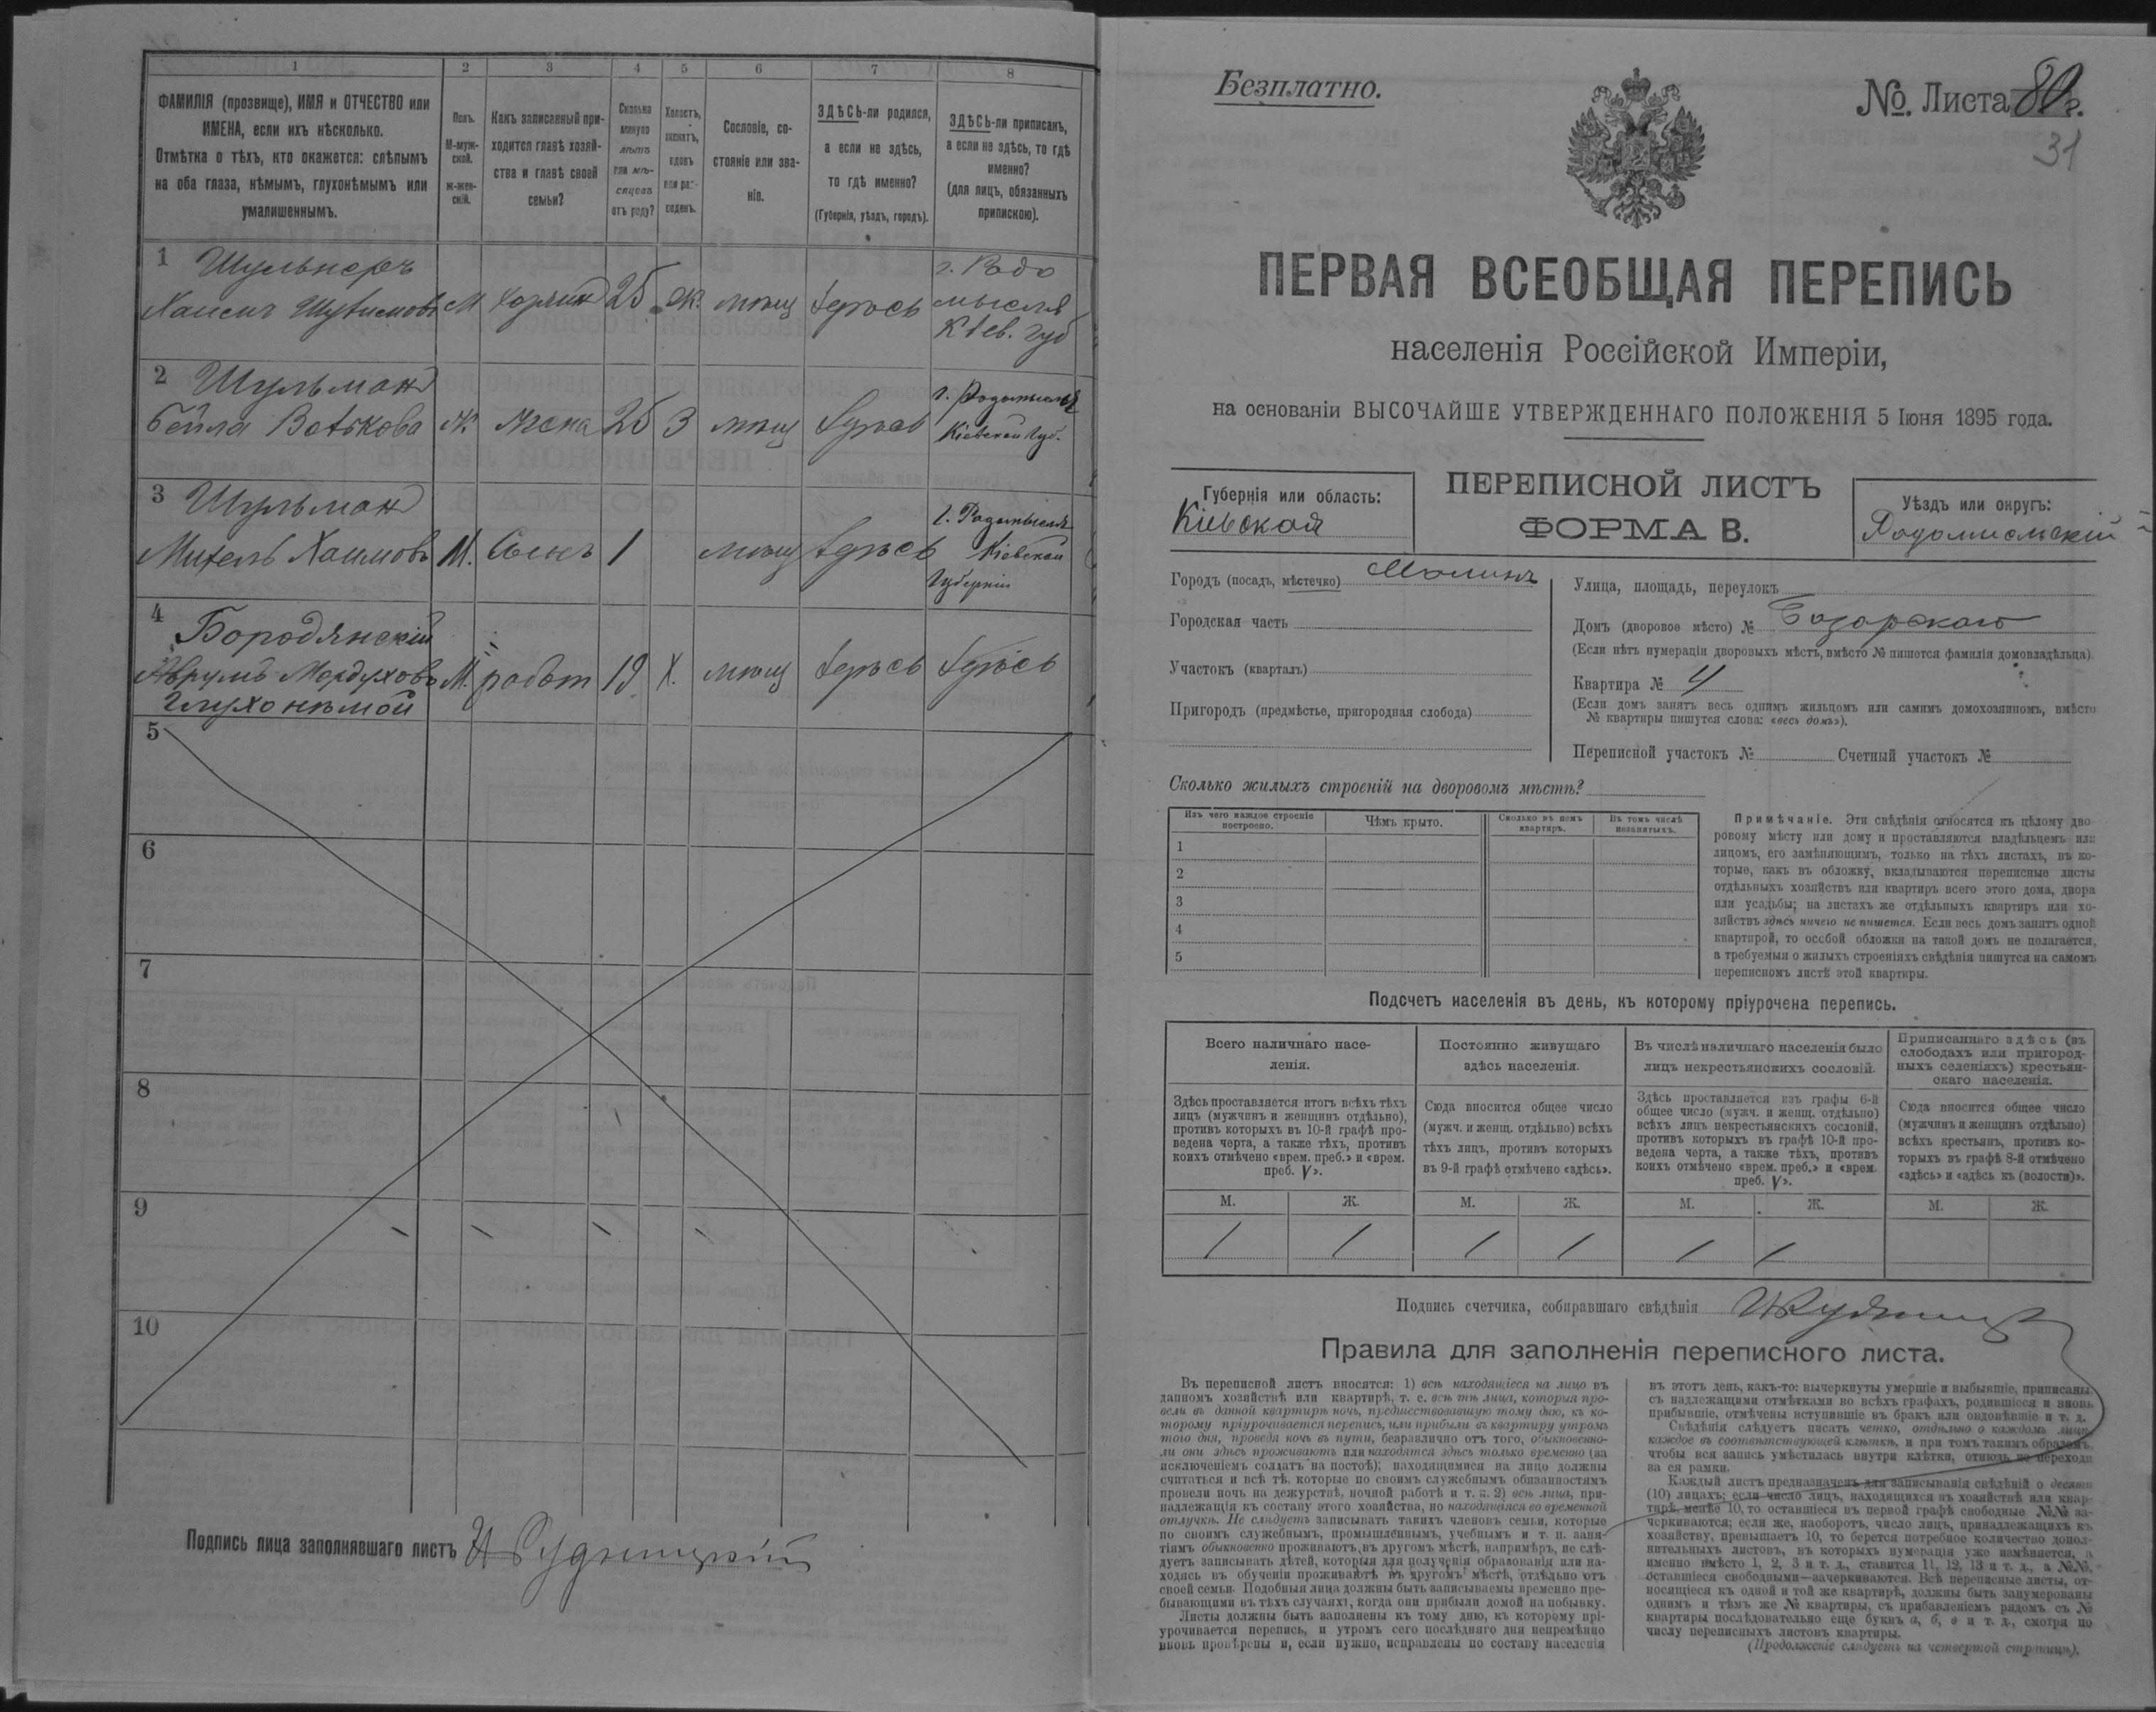 1 2 3 4 5 6 7 8
ФАМИЛІЯ (прозвище), ИМЯ и ОТЧЕСТВО или
ИМЕНА, если ихъ нѣсколько.
Отмѣтка о тѣхъ, кто окажется: слѣпымъ
на оба глаза, нѣмымъ, глухонѣмымъ или
умалишеннымъ.
Полъ.
М-муж-
ской.
ж-жен-
скій.
Какъ записанный при-
ходится главѣ хозяй-
ства и главѣ своей
семьи?
Сколько
минуло
лѣтъ
или мѣ-
сяцевъ
отъ роду?
Холостъ,
женатъ,
вдовъ
или раз-
веденъ.
Сословіе, со-
стояніе или зва-
ніе.
ЗДѢСЬ-ли родился,
а если не здѣсь,
то гдѣ именно?
(Губернія, уѣздъ, городъ).
ЗДѢСЬ-ли приписанъ,
а если не здѣсь, то гдѣ
именно?
(для лицъ, обязанныхъ
припискою).
1
М Хозяин 25 ж. мѣщ здѣсь
г. Радо
мысля
Кіев. губ
2 Шульман
Бейла ж. жена 25 З мѣщ здѣсь
г. Радомысль
Кіевской губ.
3 Шульман
Хаимовъ М. Сынъ 1 мѣщ здѣсь
г. Радомысля
Кіевской
Губерніи
4 Бородянскій
Аврумъ Мордуховъ М. работ 19 Х. мѣщ здѣсь здѣсь
Глухонѣмой
5
6
7
8
9
10
Подпись лица заполнявшаго листъ И Рудницкій
Безплатно.
№. Листа 80 г.
31
ПЕРВАЯ ВСЕОБЩАЯ ПЕРЕПИСЬ
населенія Россійской Имперіи,
на основаніи ВЫСОЧАЙШЕ УТВЕРЖДЕННАГО ПОЛОЖЕНІЯ 5 Іюня 1895 года.
Губернія или область:
Кіевская
ПЕРЕПИСНОЙ ЛИСТЪ
ФОРМА В.
Уѣздъ или округъ:
Радомысльскій
Городъ (посадъ, мѣстечко) Малинъ
Городская часть
Участокъ (кварталъ)
Пригородъ (предмѣстье, пригородная слобода)
Улица, площадь, переулокъ
Домъ (дворовое мѣсто) № Базарскаго
(Если нѣтъ нумераціи дворовыхъ мѣстъ, вмѣсто № пишется фамилія домовладѣльца).
Квартира № 4
(Если домъ занятъ весь однимъ жильцомъ или самимъ домохозяиномъ, вмѣсто
№ квартиры пишутся слова: «весь домъ»).
Переписной участокъ № Счетный участокъ №
Сколько жилыхъ строеній на дворовомъ мѣстѣ?
Изъ чего каждое строеніе
построено.
Чѣмъ крыто.
Сколько въ немъ
квартиръ.
Въ томъ числѣ
незанятыхъ.
1
2
3
4
5
Примѣчаніе. Эти свѣдѣнія относятся къ цѣлому дво-
ровому мѣсту или дому и проставляются владѣльцемъ или
лицомъ, его замѣняющимъ, только на тѣхъ листахъ, въ ко-
торые, какъ въ обложку, вкладываются переписные листы
отдѣльныхъ хозяйствъ или квартиръ всего этого дома, двора
или усадьбы; на листахъ же отдѣльныхъ квартиръ или хо-
зяйствъ здѣсь ничего не пишется. Если весь домъ занятъ одной
квартирой, то особой обложки на такой домъ не полагается,
а требуемыя о жилыхъ строеніяхъ свѣдѣнія пишутся на самомъ
переписномъ листѣ этой квартиры.
Подсчетъ населенія въ день, къ которому пріурочена перепись.
Всего наличнаго насе-
ленія.
Здѣсь проставляется итогъ всѣхъ тѣхъ
лицъ (мужчинъ и женщинъ отдѣльно),
противъ которыхъ въ 10-й графѣ про-
ведена черта, а также тѣхъ, противъ
коихъ отмѣчено «врем. преб.» и «врем.
преб. V».
Постоянно живущаго
здѣсь населенія.
Сюда вносится общее число
(мужч. и женщ. отдѣльно) всѣхъ
тѣхъ лицъ, противъ которыхъ
въ 9-й графѣ отмѣчено «здѣсь».
Въ числѣ наличнаго населенія было
лицъ некрестьянскихъ сословій.
Здѣсь проставляется изъ графы 6-й
общее число (мужч. и женщ. отдѣльно)
всѣхъ лицъ некрестьянскихъ сословій,
противъ которыхъ въ графѣ 10-й про-
ведена черта, а также тѣхъ, противъ
коихъ отмѣчено «врем. преб.» и «врем.
преб. V».
Приписаннаго здѣсь (въ
слободахъ или пригород-
ныхъ селеніяхъ) крестьян-
скаго населенія.
Сюда вносится общее число
(мужчинъ и женщинъ отдѣльно)
всѣхъ крестьянъ, противъ ко-
торыхъ въ графѣ 8-й отмѣчено
«здѣсь» и «здѣсь къ (волости)».
М. Ж. М. Ж. М. Ж. М. Ж.
/ / / / / /
Подпись счетчика, собиравшаго свѣдѣнія
Правила для заполненія переписного листа.
Въ переписной листъ вносятся: 1) всѣ находящіеся на лицо въ
данномъ хозяйствѣ или квартирѣ, т. е. всѣ тѣ лица, которыя про-
вели въ данной квартирѣ ночь, предшествовавшую тому дню, къ ко-
торому пріурочивается перепись, или прибыли въ квартиру утромъ
того дня, проведя ночь въ пути, безразлично отъ того, обыкновенно-
ли они здѣсь проживаютъ или находятся здѣсь только временно (за
исключеніемъ солдатъ на постоѣ); находящимися на лицо должны
считаться и всѣ тѣ, которые по своимъ служебнымъ обязанностямъ
провели ночь на дежурствѣ, ночной работѣ и т. п. 2) всѣ лица, при-
надлежащія къ составу этого хозяйства, но находящіяся во временной
отлучкѣ. Не слѣдуетъ записывать такихъ членовъ семьи, которые
по своимъ служебнымъ, промышленнымъ, учебнымъ и т. п. заня-
тіямъ обыкновенно проживаютъ въ другомъ мѣстѣ, напримѣръ, не слѣ-
дуетъ записывать дѣтей, которыя для полученія образованія или на-
ходясь въ обученіи проживаютъ въ другомъ мѣстѣ, отдѣльно отъ
своей семьи. Подобныя лица должны быть записываемы временно пре-
бывающими въ тѣхъ случаяхъ, когда они прибыли домой на побывку.
Листы должны быть заполнены къ тому дню, къ которому прі-
урочивается перепись, и утромъ сего послѣдняго дня непремѣнно
вновь провѣрены и, если нужно, исправлены по составу населенія
въ этотъ день, какъ-то: вычеркнуты умершіе и выбывшіе, приписаны
съ надлежащими отмѣтками во всѣхъ графахъ, родившіеся и вновь
прибывшіе, отмѣчены вступившіе въ бракъ или овдовѣвшіе и т. д.
Свѣдѣнія слѣдуетъ писать четко, отдѣльно о каждомъ лицѣ,
каждое въ соотвѣтствующей клѣткѣ, и при томъ такимъ образомъ,
чтобы вся запись умѣстилась внутри клѣтки, отнюдь не переходя
за ея рамки.
Каждый листъ предназначенъ для записыванія свѣдѣній о десяти
(10) лицахъ; если число лицъ, находящихся въ хозяйствѣ или квар-
тирѣ, менѣе 10, то оставшіеся въ первой графѣ свободные №№ за-
черкиваются; если же, наоборотъ, число лицъ, принадлежащихъ къ
хозяйству, превышаетъ 10, то берется потребное количество допол-
нительныхъ листовъ, въ которыхъ нумерація уже измѣняется, а
именно вмѣсто 1, 2, 3 и т. д., ставится 11, 12, 13 и т. д., а №№,
оставшіеся свободными—зачеркиваются. Всѣ переписные листы, от-
носящіеся къ одной и той же квартирѣ, должны быть занумерованы
однимъ и тѣмъ же № квартиры, съ прибавленіемъ рядомъ съ №
квартиры послѣдовательно еще буквъ а, б, в и т. д., смотря по
числу переписныхъ листовъ квартиры.
(Продолженіе слѣдуетъ на четвертой страницѣ).